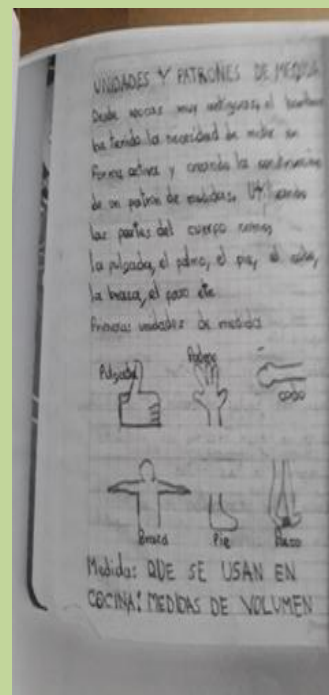 UNIDADES Y PATRONES DE MEDIDA
Desde epocas muy antiguas, el hombre
ha tenido la necesidad de medir en
forma activa y creando la
de un patron de medidas, Utilizando
las partes del cuerpo como,
la pulgada, el palmo, el pie, el codo,
la braza, el paso etc
Primeras unidades de medida
Pulgada
Palmo
codo
Braza
Pie
Paso
Medidas QUE SE USAN EN
COCINA: MEDIDAS DE VOLUMEN